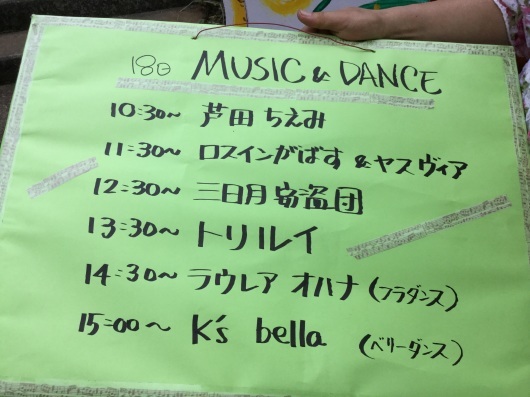 18日 MUSIC & DANCE
10:30〜 芦田ちえみ
11:30〜 ロスインがばす & ヤスヴィア
12:30〜 三日月窃盗団
13:30〜 トリルイ
14:30〜 ラウレア オハナ (フラダンス)
15:00〜 K's bella (ベリーダンス)